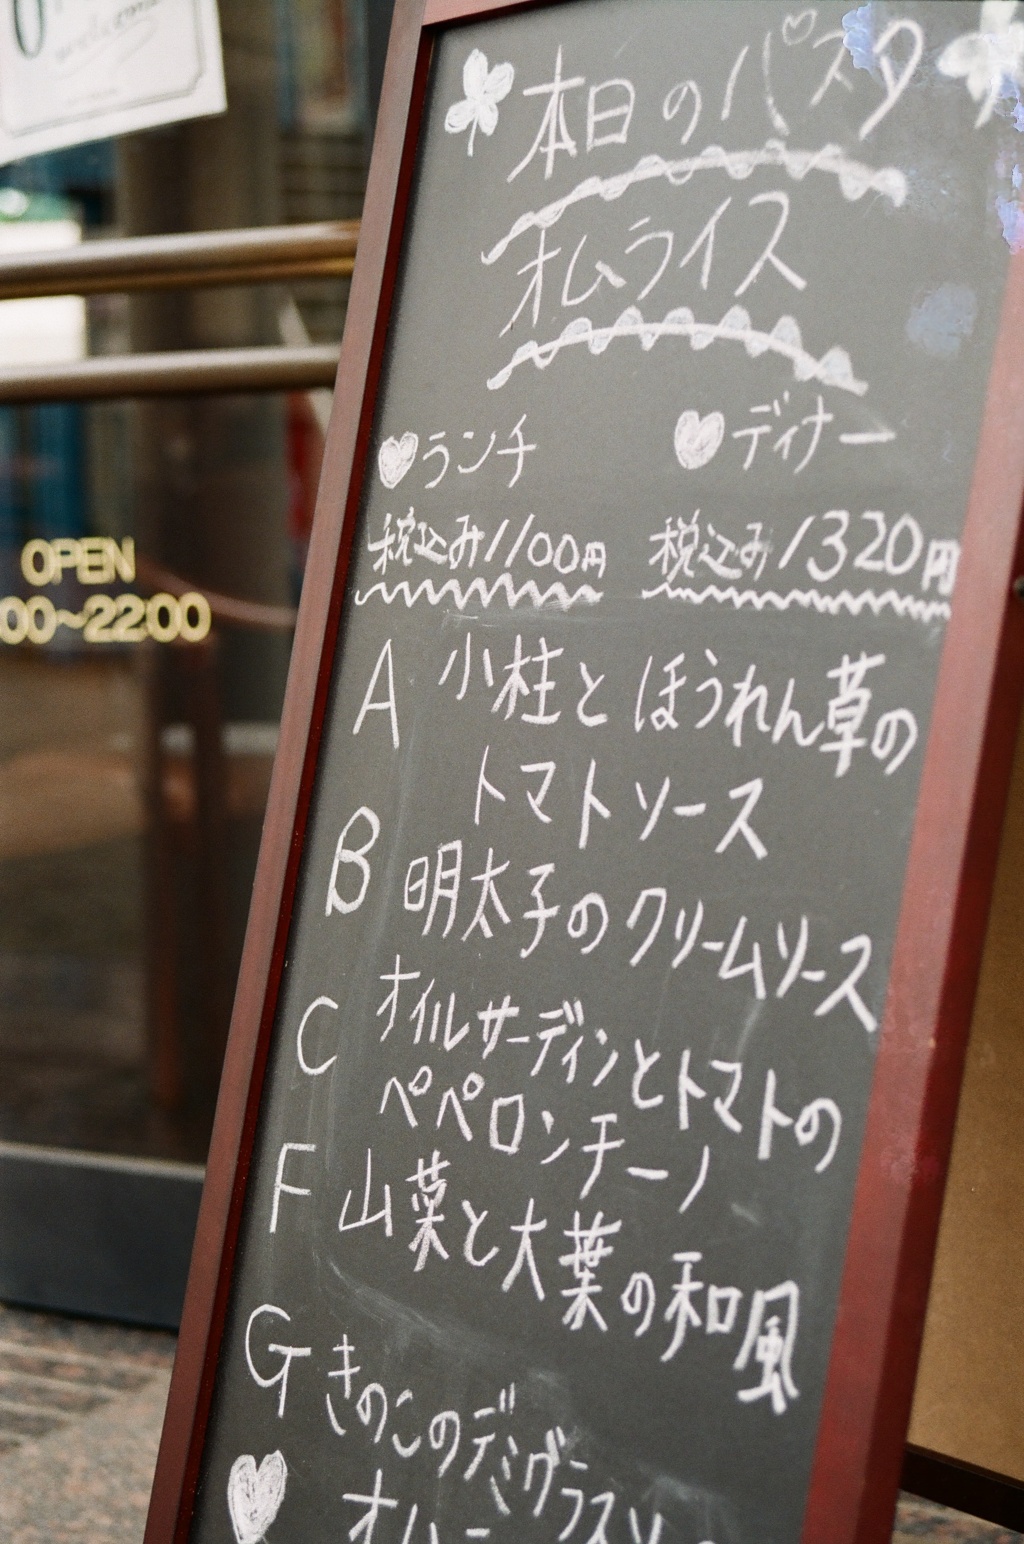 本日のパスタ
オムライス
ランチ ディナー
税込み1100円 税込み1320円
A 小柱とほうれん草の
トマトソース
B 明太子のクリームソース
C オイルサーディンとトマトの
ペペロンチーノ
F 山菜と大葉の和風
G きのこのデミグラスソ
オム
OPEN
00~22:00